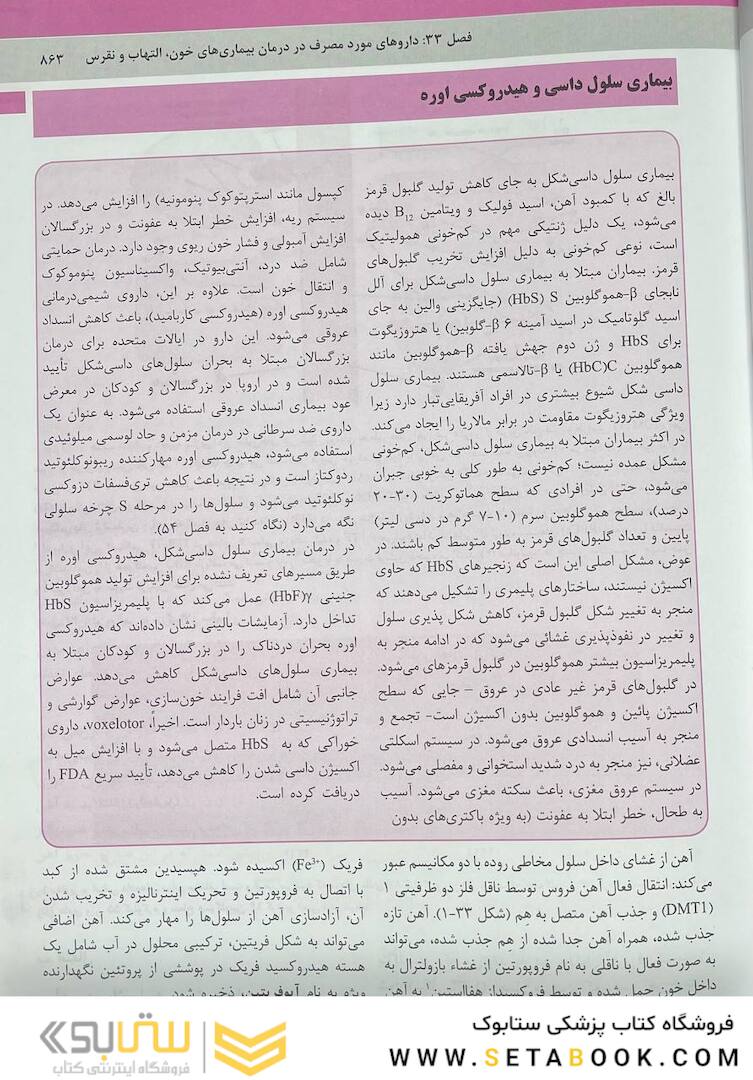 فصل ۳۳: داروهای مورد مصرف در درمان بیماری‌های خون، التهاب و نقرس ۸۶۳
بیماری سلول داسی و هیدروکسی اوره
بیماری سلول داسی‌شکل به جای کاهش تولید گلبول قرمز
بالغ که با کمبود آهن، اسید فولیک و ویتامین B12 دیده
می‌شود، یک دلیل ژنتیکی مهم در کم‌خونی همولیتیک
است، نوعی کم‌خونی به دلیل افزایش تخریب گلبول‌های
قرمز. بیماران مبتلا به بیماری سلول داسی‌شکل برای آلل
نابجای β-هموگلوبین S (HbS) (جایگزینی والین به جای
اسید گلوتامیک در اسید آمینه ۶ β-گلوبین) یا هتروزیگوت
برای HbS و ژن دوم جهش یافته β-هموگلوبین مانند
هموگلوبین C(HbC) یا β-تالاسمی هستند. بیماری سلول
داسی شکل شیوع بیشتری در افراد آفریقایی‌تبار دارد زیرا
ویژگی هتروزیگوت مقاومت در برابر مالاریا را ایجاد می‌کند.
در اکثر بیماران مبتلا به بیماری سلول داسی‌شکل، کم‌خونی
مشکل عمده نیست؛ کم‌خونی به طور کلی به خوبی جبران
می‌شود، حتی در افرادی که سطح هماتوکریت (۳۰-۲۰
درصد)، سطح هموگلوبین سرم (۱۰-۷ گرم در دسی لیتر)
پایین و تعداد گلبول‌های قرمز به طور متوسط کم باشند. در
عوض، مشکل اصلی این است که زنجیرهای HbS که حاوی
اکسیژن نیستند، ساختارهای پلیمری را تشکیل می‌دهند که
منجر به تغییر شکل گلبول قرمز، کاهش شکل پذیری سلول
و تغییر در نفوذپذیری غشائی می‌شود که در ادامه منجر به
پلیمریزاسیون بیشتر هموگلوبین در گلبول قرمزهای می‌شود.
در گلبول‌های قرمز غیر عادی در عروق – جایی که سطح
اکسیژن پائین و هموگلوبین بدون اکسیژن است- تجمع و
منجر به آسیب انسدادی عروق می‌شود. در سیستم اسکلتی
عضلانی، نیز منجر به درد شدید استخوانی و مفصلی می‌شود.
در سیستم عروق مغزی، باعث سکته مغزی می‌شود. آسیب
به طحال، خطر ابتلا به عفونت (به ویژه باکتری‌های بدون
کپسول مانند استرپتوکوک پنومونیه) را افزایش می‌دهد. در
سیستم ریه، افزایش خطر ابتلا به عفونت و در بزرگسالان
افزایش آمبولی و فشار خون ریوی وجود دارد. درمان حمایتی
شامل ضد درد، آنتی‌بیوتیک، واکسیناسیون پنوموکوک
و انتقال خون است. علاوه بر این، داروی شیمی‌درمانی
هیدروکسی اوره (هیدروکسی کاربامید)، باعث کاهش انسداد
عروقی می‌شود. این دارو در ایالات متحده برای درمان
بزرگسالان مبتلا به بحران سلول‌های داسی‌شکل تأیید
شده است و در اروپا در بزرگسالان و کودکان در معرض
عود بیماری انسداد عروقی استفاده می‌شود. به عنوان یک
داروی ضد سرطانی در درمان مزمن و حاد لوسمی میلوئیدی
استفاده می‌شود، هیدروکسی اوره مهارکننده ریبونوکلئوتید
ردوکتاز است و در نتیجه باعث کاهش تری‌فسفات دزوکسی
نوکلئوتید می‌شود و سلول‌ها را در مرحله S چرخه سلولی
نگه می‌دارد (نگاه کنید به فصل ۵۴).
در درمان بیماری سلول داسی‌شکل، هیدروکسی اوره از
طریق مسیرهای تعریف نشده برای افزایش تولید هموگلوبین
جنینی γ(HbF) عمل می‌کند که با پلیمریزاسیون HbS
تداخل دارد. آزمایشات بالینی نشان داده‌اند که هیدروکسی
اوره بحران دردناک را در بزرگسالان و کودکان مبتلا به
بیماری سلول‌های داسی‌شکل کاهش می‌دهد. عوارض
جانبی آن شامل افت فرایند خون‌سازی، عوارض گوارشی و
تراتوژنیسیتی در زنان باردار است. اخیراً، voxelotor، داروی
خوراکی که به HbS متصل می‌شود و با افزایش میل به
اکسیژن داسی شدن را کاهش می‌دهد، تأیید سریع FDA را
دریافت کرده است.
آهن از غشای داخل سلول مخاطی روده با دو مکانیسم عبور
می‌کند: انتقال فعال آهن فروس توسط ناقل فلز دو ظرفیتی ۱
(DMT1) و جذب آهن متصل به هِم (شکل ۳۳-۱). آهن تازه
جذب شده، همراه آهن جدا شده از هِم جذب شده، می‌تواند
به صورت فعال با ناقلی به نام فروپورتین از غشاء بازولترال به
داخل خون حمل شده و توسط فروکسیداز هفاستین۱ به آهن
فریک (Fe3+) اکسیده شود. هپسیدین مشتق شده از کبد
با اتصال به فروپورتین و تحریک اینترنالیزه و تخریب شدن
آن، آزادسازی آهن از سلول‌ها را مهار می‌کند. آهن اضافی
می‌تواند به شکل فریتین، ترکیبی محلول در آب شامل یک
هسته هیدروکسید فریک در پوششی از پروتئین نگهدارنده
ویژه به نام آپوفریتین، ذخیره شود.
فروشگاه کتاب پزشکی ستابوک
WWW.SETABOOK.COM
ستابوک
فروشگاه اینترنتی کتاب